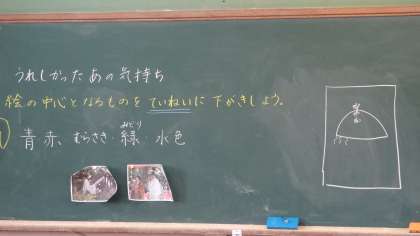 うれしかった あの気持ち
絵の中心となるものを ていねいに 下がきしよう。
みどり
青 赤 むらさき 緑 水色